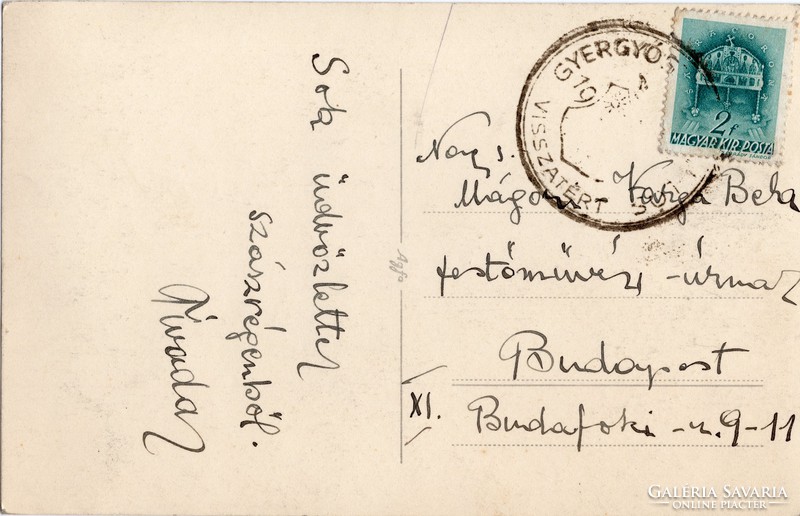 Sok üdvözlettel
szászrégenből.
Tivadar
Agfa
GYERGYÓS
19
VISSZATÉRT
2f
MAGYAR KIR. POSTA
Nags.
Mágori Varga Bela
festőművész-úrnak
Budapest
XI.
Budafoki-u. 9-11
GALÉRIA SAVARIA
ONLINE PIACTÉR